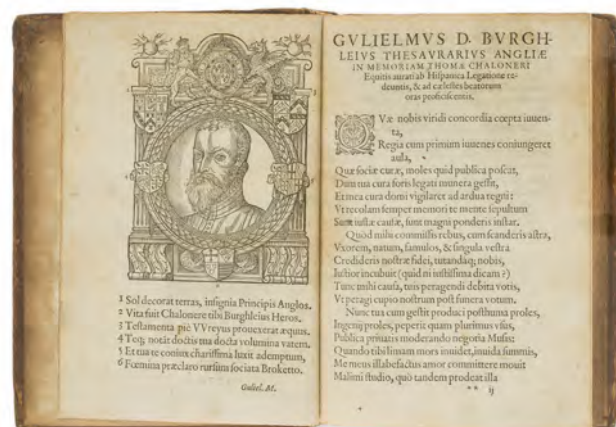 1 Sol decorat terras, insignia Principis Anglos.
2 Vita fuit Chalonere tibi Burghleius Heros.
3 Testamenta piè VVreyus prouexerat æquus.
4 Teq; notât doctis tua docta volumina vatem.
5 Et tua te coniux charissima luxit ademptum,
6 Fœmina præclaro rursum sociata Broketto.
Guliel. M.
GVLIELMVS D. BVRGH-
LEIVS THESAVRARIVS ANGLIÆ
IN MEMORIAM THOMÆ CHALONERI
Equitis aurati ab Hispanica Legatione re-
deuntis, & ad cælestes beatorum
oras proficiscentis.
QVæ nobis viridi concordia cœpta iuuen-
ta,
Regia cum primium iuuenes coniungeret
aula,
Quæ sociæ curæ, moles quid publica poscat,
Dum tua cura foris legati munera gessit,
Et mea cura domi vigilaret ad ardua regni:
Vt recolam semper memori te mente sepultum
Sunt iustæ causæ, sunt magni ponderis instar.
Quòd mihi commissis rebus, cum scanderis astra,
Vxorem, natum, famulos, & singula vestra
Credideris nostræ fidei, tutandaq; nobis,
Iustior incubuit (quid ni iustissima dicam?)
Tunc mihi causa, tuis peragendi debita votis,
Vt peragi cupio nostrum post funera votum.
Nunc tua cum gestit produci posthuma proles,
Ingenij proles, peperit quam plurimus vsus,
Publica priuatis moderando negotia Musis:
Quando tibi limam mors inuidet, inuida summis,
Me meus illabefactus amor committere mouit
Malimi studio, quò tandem prodeat illa
** ij